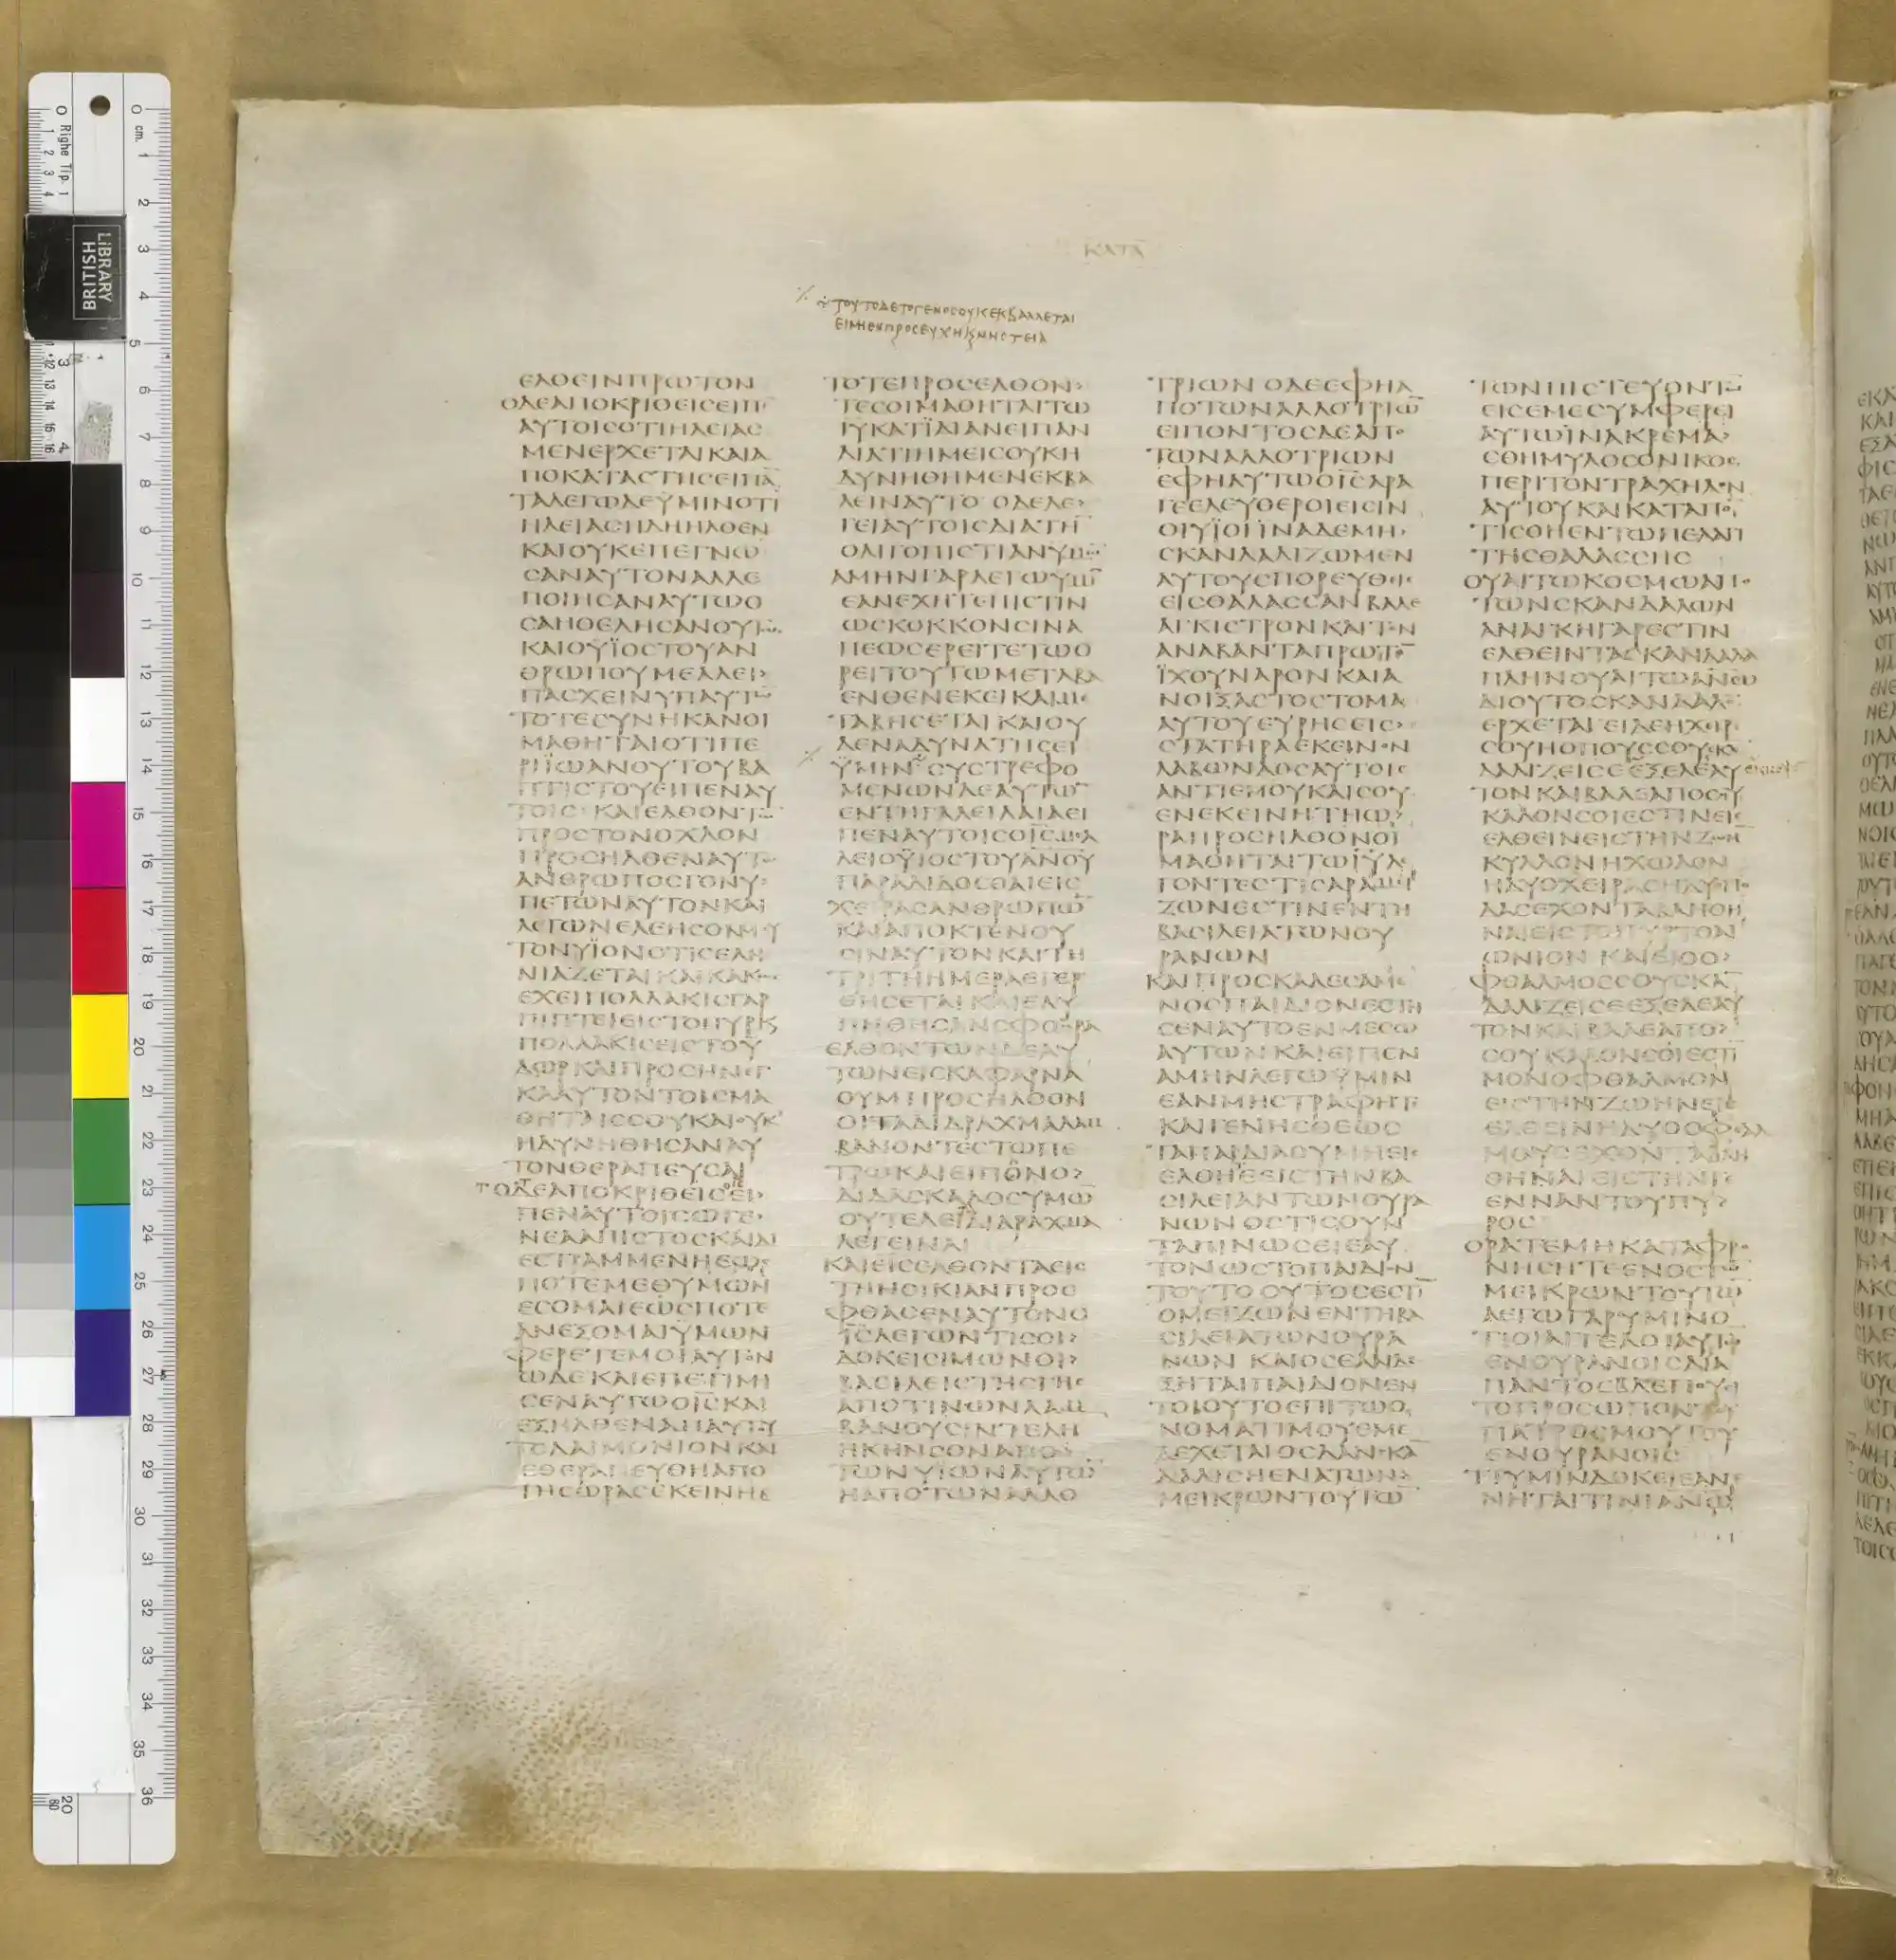 ΚΑΤΑ
ΤΟΥΤΟΔΕΤΟΓΕΝΟϹΟΥΚΕΚΒΑΛΛΕΤΑΙ
ΕΙΜΗΕΝΠΡΟϹΕΥΧΗΚΝΗϹΤΕΙΑ
ΕΛΘΕΙΝΠΡΩΤΟΝ
ΟΔΕΑΠΟΚΡΙΘΕΙϹΕΙΠΕ
ΑΥΤΟΙϹΟΤΙΗΛΕΙΑϹ
ΜΕΝΕΡΧΕΤΑΙΚΑΙΑ
ΠΟΚΑΤΑϹΤΗϹΕΙΠΑ̅
ΤΑΛΕΓΩΔΕΫΜΙΝΟΤΙ
ΗΛΕΙΑϹΗΔΗΗΛΘΕΝ
ΚΑΙΟΥΚΕΠΕΓΝΩ
ϹΑΝΑΥΤΟΝΑΛΛΕ
ΠΟΙΗϹΑΝΑΥΤΩΟ
ϹΑΗΘΕΛΗϹΑΝΟΥΤΩϹ
ΚΑΙΟΫΙΟϹΤΟΥΑΝ
ΘΡΩΠΟΥΜΕΛΛΕΙ>
ΠΑϹΧΕΙΝΥΠΑΥΤΩ̅
ΤΟΤΕϹΥΝΗΚΑΝΟΙ
ΜΑΘΗΤΑΙΟΤΙΠΕ
ΡΙΪΩΑΝΟΥΤΟΥΒΑ
ΠΤΙϹΤΟΥΕΙΠΕΝΑΥ
ΤΟΙϹ ΚΑΙΕΛΘΟΝΤΩ̅
ΠΡΟϹΤΟΝΟΧΛΟΝ
ΠΡΟϹΗΛΘΕΝΑΥΤΩ
ΑΝΘΡΩΠΟϹΓΟΝΥ>
ΠΕΤΩΝΑΥΤΟΝΚΑΙ
ΛΕΓΩΝΕΛΕΗϹΟΝΜΟΥ
ΤΟΝΥΪΟΝΟΤΙϹΕΛΗ
ΝΙΑΖΕΤΑΙΚΑΙΚΑΚΩϹ
ΕΧΕΙΠΟΛΛΑΚΙϹΓΑΡ
ΠΙΠΤΕΙΕΙϹΤΟΠΥΡΚ
ΠΟΛΛΑΚΙϹΕΙϹΤΟΫ
ΔΩΡΚΑΙΠΡΟϹΗΝΕΓ
ΚΑΑΥΤΟΝΤΟΙϹΜΑ
ΘΗΤΑΙϹϹΟΥΚΑΙΟΥΚ
ΗΔΥΝΗΘΗϹΑΝΑΥ
ΤΟΝΘΕΡΑΠΕΥϹΑΙ
ΤΟΔΕΑΠΟΚΡΙΘΕΙϹΕΙ>
ΠΕΝΑΥΤΟΙϹΩΓΕ>
ΝΕΑΑΠΙϹΤΟϹΚΑΙΔΙ
ΕϹΤΡΑΜΜΕΝΗΕΩϹ
ΠΟΤΕΜΕΘΥΜΩΝ
ΕϹΟΜΑΙΕΩϹΠΟΤΕ
ΑΝΕΞΟΜΑΙΫΜΩΝ
ΦΕΡΕΤΕΜΟΙΑΥΤΟΝ
ΩΔΕΚΑΙΕΠΕΤΙΜΗ
ϹΕΝΑΥΤΩΟΙ̅Ϲ̅ΚΑΙ
ΕΞΗΛΘΕΝΑΠΑΥΤΟΥ
ΤΟΔΑΙΜΟΝΙΟΝΚΑΙ
ΕΘΕΡΑΠΕΥΘΗΑΠΟ
ΤΗϹΩΡΑϹΕΚΕΙΝΗϹ
ΤΟΤΕΠΡΟϹΕΛΘΟΝ>
ΤΕϹΟΙΜΑΘΗΤΑΙΤΩ
ΙΥΚΑΤΪΔΙΑΝΕΙΠΑΝ
ΔΙΑΤΙΗΜΕΙϹΟΥΚΗ
ΔΥΝΗΘΗΜΕΝΕΚΒΑ
ΛΕΙΝΑΥΤΟ ΟΔΕΛΕ>
ΓΕΙΑΥΤΟΙϹΔΙΑΤΗ̅
ΟΛΙΓΟΠΙϹΤΙΑΝΥΜΩ̅
ΑΜΗΝΓΑΡΛΕΓΩΥΜΙ̅
ΕΑΝΕΧΗΤΕΠΙϹΤΙΝ
ΩϹΚΟΚΚΟΝϹΙΝΑ
ΠΕΩϹΕΡΕΙΤΕΤΩΟ
ΡΕΙΤΟΥΤΩΜΕΤΑΒΑ
ΕΝΘΕΝΕΚΕΙΚΑΙΜΕ
ΤΑΒΗϹΕΤΑΙΚΑΙΟΥ
ΔΕΝΑΔΥΝΑΤΗϹΕΙ
ΫΜΙΝ ϹΥϹΤΡΕΦΟ
ΜΕΝΩΝΔΕΑΥΤΩ̅
ΕΝΤΗΓΑΛΕΙΛΑΙΑΕΙ
ΠΕΝΑΥΤΟΙϹΟΙ̅Ϲ̅ΜΕΛ
ΛΕΙΟΫΙΟϹΤΟΥΑΝΟΥ
ΠΑΡΑΔΙΔΟϹΘΑΙΕΙϹ
ΧΕΙΡΑϹΑΝΘΡΩΠΩ̅
ΚΑΙΑΠΟΚΤΕΝΟΥ
ϹΙΝΑΥΤΟΝΚΑΙΤΗ
ΤΡΙΤΗΗΜΕΡΑΕΓΕΡ
ΘΗϹΕΤΑΙ ΚΑΙΕΛΥ
ΠΗΘΗϹΑΝϹΦΟΔΡΑ
ΕΛΘΟΝΤΩΝΔΕΑΥ
ΤΩΝΕΙϹΚΑΦΑΡΝΑ
ΟΥΜΠΡΟϹΗΛΘΟΝ
ΟΙΤΑΔΙΔΡΑΧΜΑΛΑΜ
ΒΑΝΟΝΤΕϹΤΩΠΕ
ΤΡΩΚΑΙΕΙΠΟΝΟ>
ΔΙΔΑϹΚΑΛΟϹΥΜΩ̅
ΟΥΤΕΛΕΙΔΙΔΡΑΧΜΑ
ΛΕΓΕΙΝΑΙ
ΚΑΙΕΙϹΕΛΘΟΝΤΑΕΙϹ
ΤΗΝΟΙΚΙΑΝΠΡΟΕ
ΦΘΑϹΕΝΑΥΤΟΝΟ
Ι̅Ϲ̅ΛΕΓΩΝΤΙϹΟΙ>
ΔΟΚΕΙϹΙΜΩΝΟΙ>
ΒΑϹΙΛΕΙϹΤΗϹΓΗϹ
ΑΠΟΤΙΝΩΝΛΑΜ
ΒΑΝΟΥϹΙΝΤΕΛΗ
ΗΚΗΝϹΟΝΑΠΟ
ΤΩΝΥΪΩΝΑΥΤΩ̅
ΗΑΠΟΤΩΝΑΛΛΟ
ΤΡΙΩΝ ΟΔΕΕΦΗΑ
ΠΟΤΩΝΑΛΛΟΤΡΙΩ̅
ΕΙΠΟΝΤΟϹΔΕΑΠΟ
ΤΩΝΑΛΛΟΤΡΙΩΝ
ΕΦΗΑΥΤΩΟΙ̅Ϲ̅ΑΡΑ
ΓΕΕΛΕΥΘΕΡΟΙΕΙϹΙΝ
ΟΙΥΪΟΙΪΝΑΔΕΜΗ>
ϹΚΑΝΔΑΛΙΖΩΜΕΝ
ΑΥΤΟΥϹΠΟΡΕΥΘΕΙϹ
ΕΙϹΘΑΛΑϹϹΑΝΒΑΛΕ
ΑΓΚΙϹΤΡΟΝΚΑΙΤΟΝ
ΑΝΑΒΑΝΤΑΠΡΩΤΟ̅
ΪΧΘΥΝΑΡΟΝΚΑΙΑ
ΝΟΙΞΑϹΤΟϹΤΟΜΑ
ΑΥΤΟΥΕΥΡΗϹΕΙϹ>
ϹΤΑΤΗΡΑΕΚΕΙΝΟΝ
ΛΑΒΩΝΔΟϹΑΥΤΟΙϹ
ΑΝΤΙΕΜΟΥΚΑΙϹΟΥ
ΕΝΕΚΕΙΝΗΤΗΩ>
ΡΑΠΡΟϹΗΛΘΟΝΟΙ
ΜΑΘΗΤΑΙΤΩΙ̅Υ̅ΛΕ
ΓΟΝΤΕϹΤΙϹΑΡΑΜΙ
ΖΩΝΕϹΤΙΝΕΝΤΗ
ΒΑϹΙΛΕΙΑΤΩΝΟΥ
ΡΑΝΩΝ
ΚΑΙΠΡΟϹΚΑΛΕϹΑΜΕ
ΝΟϹΠΑΙΔΙΟΝΕϹΤΗ
ϹΕΝΑΥΤΟΕΝΜΕϹΩ
ΑΥΤΩΝ ΚΑΙΕΙΠΕΝ
ΑΜΗΝΛΕΓΩΫΜΙΝ
ΕΑΝΜΗϹΤΡΑΦΗΤΕ
ΚΑΙΓΕΝΗϹΘΕΩϹ
ΤΑΠΑΙΔΙΑΟΥΜΗΕΙϹ
ΕΛΘΗΕΕΙϹΤΗΝΒΑ
ϹΙΛΕΙΑΝΤΩΝΟΥΡΑ
ΝΩΝ ΟϹΤΙϹΟΥΝ
ΤΑΠΙΝΩϹΕΙΕΑΥ
ΤΟΝΩϹΤΟΠΑΙΔΙΟΝ
ΤΟΥΤΟ ΟΥΤΟϹΕϹΤΙ̅
ΟΜΕΙΖΩΝΕΝΤΗΒΑ
ϹΙΛΕΙΑΤΩΝΟΥΡΑ
ΝΩΝ ΚΑΙΟϹΕΑΝΔΕ
ΞΗΤΑΙΠΑΙΔΙΟΝΕΝ
ΤΟΙΟΥΤΟΕΠΙΤΩΟ
ΝΟΜΑΤΙΜΟΥΕΜΕ
ΔΕΧΕΤΑΙΟϹΔΑΝϹΚΑ̅
ΔΑΛΙϹΗΕΝΑΤΩΝ>
ΜΕΙΚΡΩΝΤΟΥΤΩ̅
ΤΩΝΠΙϹΤΕΥΟΝΤΩ̅
ΕΙϹΕΜΕϹΥΜΦΕΡΕΙ
ΑΥΤΩΪΝΑΚΡΕΜΑ>
ϹΘΗΜΥΛΟϹΟΝΙΚΟϹ
ΠΕΡΙΤΟΝΤΡΑΧΗΛΟΝ
ΑΥΤΟΥΚΑΙΚΑΤΑΠΟ̅
ΤΙϹΘΗΕΝΤΩΠΕΛΑΓΙ
ΤΗϹΘΑΛΑϹϹΗϹ
ΟΥΑΙΤΩΚΟϹΜΩΑΠΟ
ΤΩΝϹΚΑΝΔΑΛΩΝ
ΑΝΑΓΚΗΓΑΡΕϹΤΙΝ
ΕΛΘΕΙΝΤΑϹΚΑΝΔΑΛΑ
ΠΛΗΝΟΥΑΙΤΩΑ̅Ν̅Ω̅
ΔΙΟΥΤΟϹΚΑΝΔΑΛΟ̅
ΕΡΧΕΤΑΙ ΕΙΔΕΗΧΕΙΡ
ϹΟΥΗΟΠΟΥϹϹΟΥϹΚΑ̅
ΔΑΛΙΖΕΙϹΕΕΞΕΛΕΑΥ
ΤΟΝΚΑΙΒΑΛΕΑΠΟϹΟΥ
ΚΑΛΟΝϹΟΙΕϹΤΙΝΕΙϹ
ΕΛΘΕΙΝΕΙϹΤΗΝΖΩΗ
ΚΥΛΛΟΝΗΧΩΛΟΝ
ΗΔΥΟΧΕΙΡΑϹΗΔΥΠΟ
ΔΑϹΕΧΟΝΤΑΒΛΗΘΗ
ΝΑΙΕΙϹΤΟΠΥΡΤΟΑΙ
ΩΝΙΟΝ ΚΑΙΕΙΟΟ>
ΦΘΑΛΜΟϹϹΟΥϹΚΑ̅
ΔΑΛΙΖΕΙϹΕΕΞΕΛΕΑΥ
ΤΟΝΚΑΙΒΑΛΕΑΠΟ>
ϹΟΥΚΑΛΟΝϹΟΙΕϹΤΙ̅
ΜΟΝΟΦΘΑΛΜΟΝ
ΕΙϹΤΗΝΖΩΗΝΕΙϹ
ΕΛΘΕΙΝΗΔΥΟΟΦΘΑΛ
ΜΟΥϹΕΧΟΝΤΑΒΛΗ
ΘΗΝΑΙΕΙϹΤΗΝΓΕ
ΕΝΝΑΝΤΟΥΠΥ>
ΡΟϹ
ΟΡΑΤΕΜΗΚΑΤΑΦΡΟ
ΝΗϹΗΤΕΕΝΟϹΤΩ̅
ΜΕΙΚΡΩΝΤΟΥΤΩ̅
ΛΕΓΩΓΑΡΥΜΙΝΟ
ΤΙΟΙΑΓΓΕΛΟΙΑΥΤΩ̅
ΕΝΟΥΡΑΝΟΙϹΔΙΑ
ΠΑΝΤΟϹΒΛΕΠΟΥϹΙ
ΤΟΠΡΟϹΩΠΟΝΤΟΥ
ΠΑΤΡΟϹΜΟΥΤΟΥ
ΕΝΟΥΡΑΝΟΙϹ
ΤΙΥΜΙΝΔΟΚΕΙΕΑΝΓΕ
ΝΗΤΑΙΤΙΝΙΑΝΘΡΩ